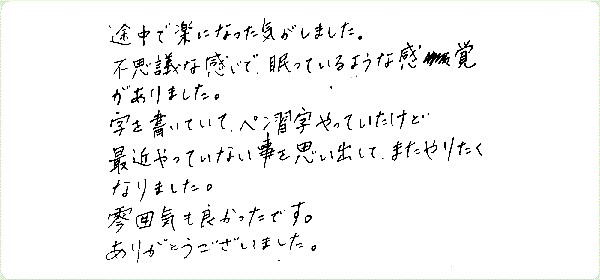 途中で楽になった気がしました。
不思議な感じで、眠っているような感覚
がありました。
字を書いていて、ペン習字やっていたけど
最近やっていない事を思い出して、またやりたく
なりました。
雰囲気も良かったです。
ありがとうございました。